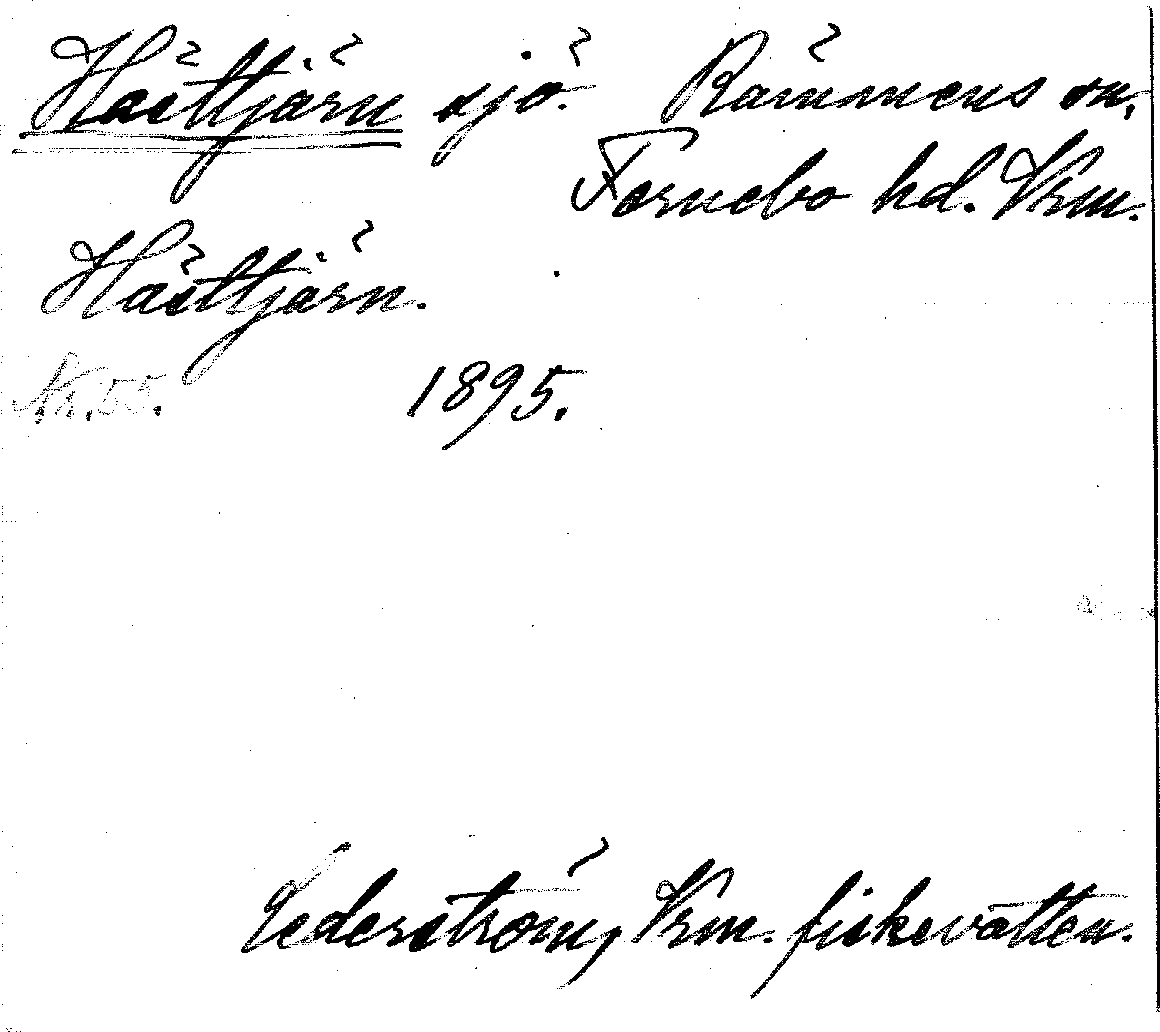 Hästtjärn sjö. Rämmens sn,
Fernebo hd. Vrm.
Hästtjärn.
Nr. 55. 1895.
Cederström, Vrm. fiskevatten.